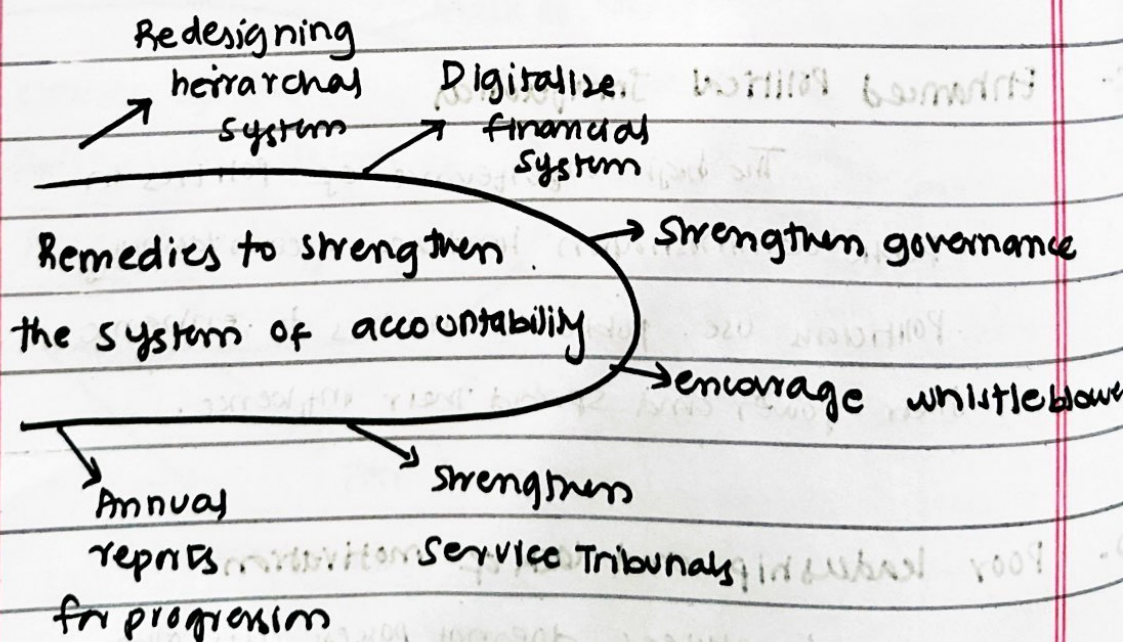 Redesigning
heirarchal
system
Digitalize
financial
system
Remedies to strengthen
the system of accountability
strengthen governance
encourage whistleblowe
Annual
reports
for progression
strengthen
Service Tribunals